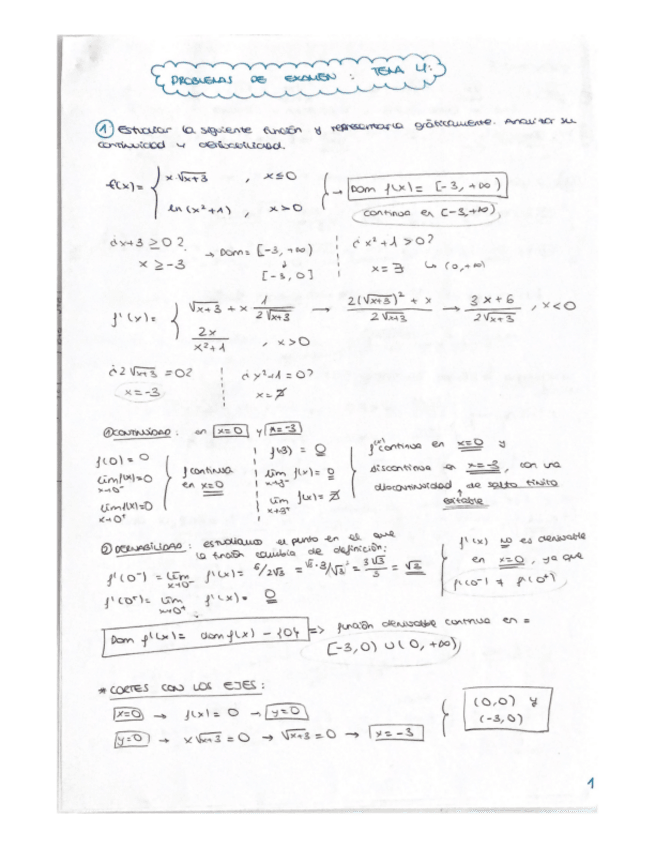 PROBLEMAS DE EXAMEN : TEMA 4:
① Estudiar la siguiente función y representarla gráficamente. Analizar su
continuidad y derivabilidad.
f(x) = { x·√x+3 , x ≤ 0
ln(x²+1) , x > 0 } → Dom f(x) = [-3, +∞)
continua en (-3, +∞)
¿x+3 ≥ 0? → Dom = [-3, +∞)
x ≥ -3
[-3, 0]
¿x²+1 > 0?
x = ∃ ↳ (0, +∞)
f'(x) = { √x+3 + x 1/2√x+3 → 2(√x+3)² + x / 2√x+3 → 3x+6 / 2√x+3 , x < 0
2x / x²+1 , x > 0
¿2√x+3 = 0?
x = -3
¿x²+1 = 0?
x = ∄
① CONTINUIDAD : en x=0 y x=-3
f(0) = 0
lim f(x) = 0
x→0⁻
lim f(x) = 0
x→0⁺
f continua
en x=0
f(-3) = 0
lim f(x) = 0
lim f(x) = ∄
f(x) continua en x=0 y
discontinua en x=-3, con una
discontinuidad de salto finito
evitable
② DERIVABILIDAD : estudiamos el punto en el que
la función cambia de definición:
f'(0⁻) = lim f'(x) = 6/2√3 = = 3√3/3 = √3
x→0⁻
f'(0⁺) = lim f'(x) = 0
x→0⁺
f'(x) no es derivable
en x=0, ya que
f'(0⁻) ≠ f'(0⁺)
Dom f'(x) = dom f(x) - {0} => función derivable continua en =
[-3, 0) ∪ (0, +∞)
* CORTES CON LOS EJES :
x=0 → f(x) = 0 → y=0
y=0 → x√x+3 = 0 → √x+3 = 0 → x = -3
(0,0) y
(-3,0)
1